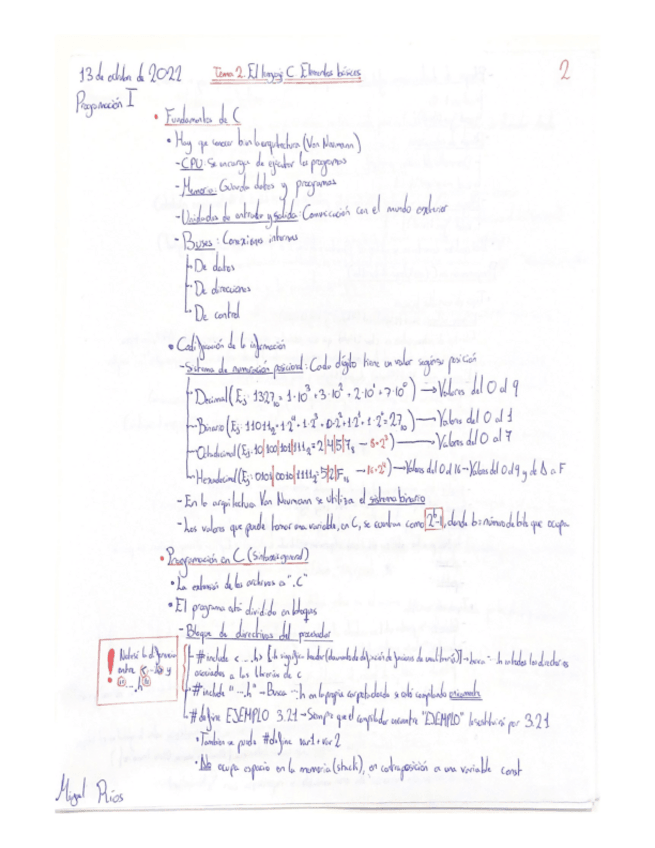 13 de octubre de 2022
Tema 2. El lenguaje C. Elementos básicos
2
Programación I
• Fundamentos de C
• Hay que conocer bien la arquitectura (Von Neumann)
- CPU: Se encarga de ejecutar los programas
- Memoria: Guarda datos y programas
- Unidades de entrada y salida: Comunicación con el mundo exterior
- Buses: Conexiones internas
De datos
De direcciones
De control
• Codificación de la información
- Sistema de numeración posicional: Cada dígito tiene un valor según su posición
Decimal (Ej: 1327₁₀ = 1·10³+3·10²+2·10¹+7·10⁰) → Valores del 0 al 9
Binario (Ej: 11011₂ = 1·2⁴+1·2³+0·2²+1·2¹+1·2⁰=27₁₀) → Valores del 0 al 1
Octadecimal (Ej: 10|100|101|111₂ = 2|4|5|7₈ → 8=2³) → Valores del 0 al 7
Hexadecimal (Ej: 0101|0010|1111₂ = 5|2|F₁₆ → 16=2⁴) → Valores del 0 al 16 → Valores del 0 al 9 y de A a F
- En la arquitectura Von Neumann se utiliza el sistema binario
- Los valores que puede tomar una variable, en C, se cuentan como 2ᵇ-1, donde b = número de bits que ocupa
• Programación en C (Sintaxis general)
• La extensión de los archivos es ".C"
• El programa está dividido en bloques
- Bloque de directivas del procesador
! Notese la diferencia
entre <...h> y
"...h"
#include <...h> [h significa header ( de de funciones de una librería)] → busca ...h en todos los directorios
asociados a las librerías de C
#include "...h" → Busca ...h en la propia carpeta donde se está compilando
#define EJEMPLO 3.21 → Siempre que el compilador encuentre "EJEMPLO" lo sustituirá por 3.21
• También se puede #define var1+var2
• No ocupa espacio en la memoria (stack), en contraposición a una variable const
Miguel Ríos